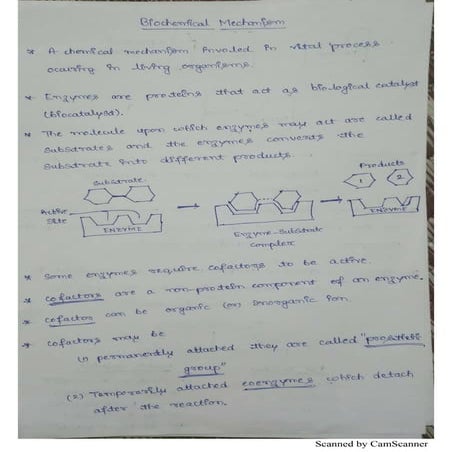 Biochemical Mechanism
* A chemical mechanism Involed In vital process
occuring In living organisms.
* Enzymes are proteins that act as biological catalyst
(biocatalyst).
* The molecule upon which enzymes may act are called
substrates and the enzymes converts the
substrate into different products.
Substrate
Products
1
2
Active
Site
ENZYME
ENZYME
Enzyme-Substrate
complex
* Some enzymes require cofactors to be active.
* cofactors are a non-protein component of an enzyme.
* cofactor can be organic (or) Inorganic Ion.
* cofactors may be
(1) permanently attached they are called "prosthetic
group"
(2) Temporarily attached coenzymes which detach
after the reaction.
Scanned by CamScanner